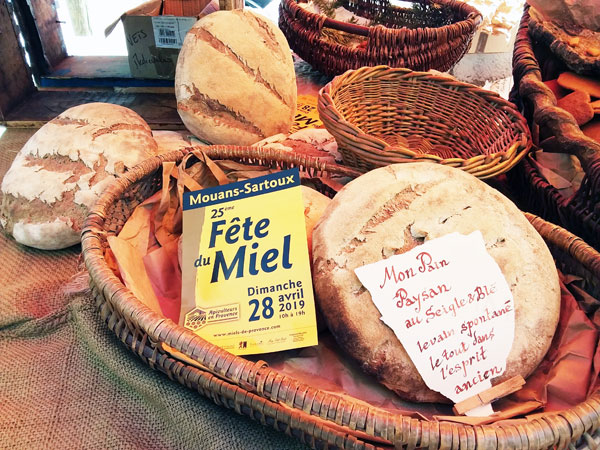 Mouans-Sartoux
25ème
Fête
du Miel
Dimanche
28 avril
2019
10h à 19h
Apiculteurs
en Provence
www.miels-de-provence.com
Mon Pain
Paysan
au Seigle & Blé
levain spontané
le tout dans
l'esprit
ancien